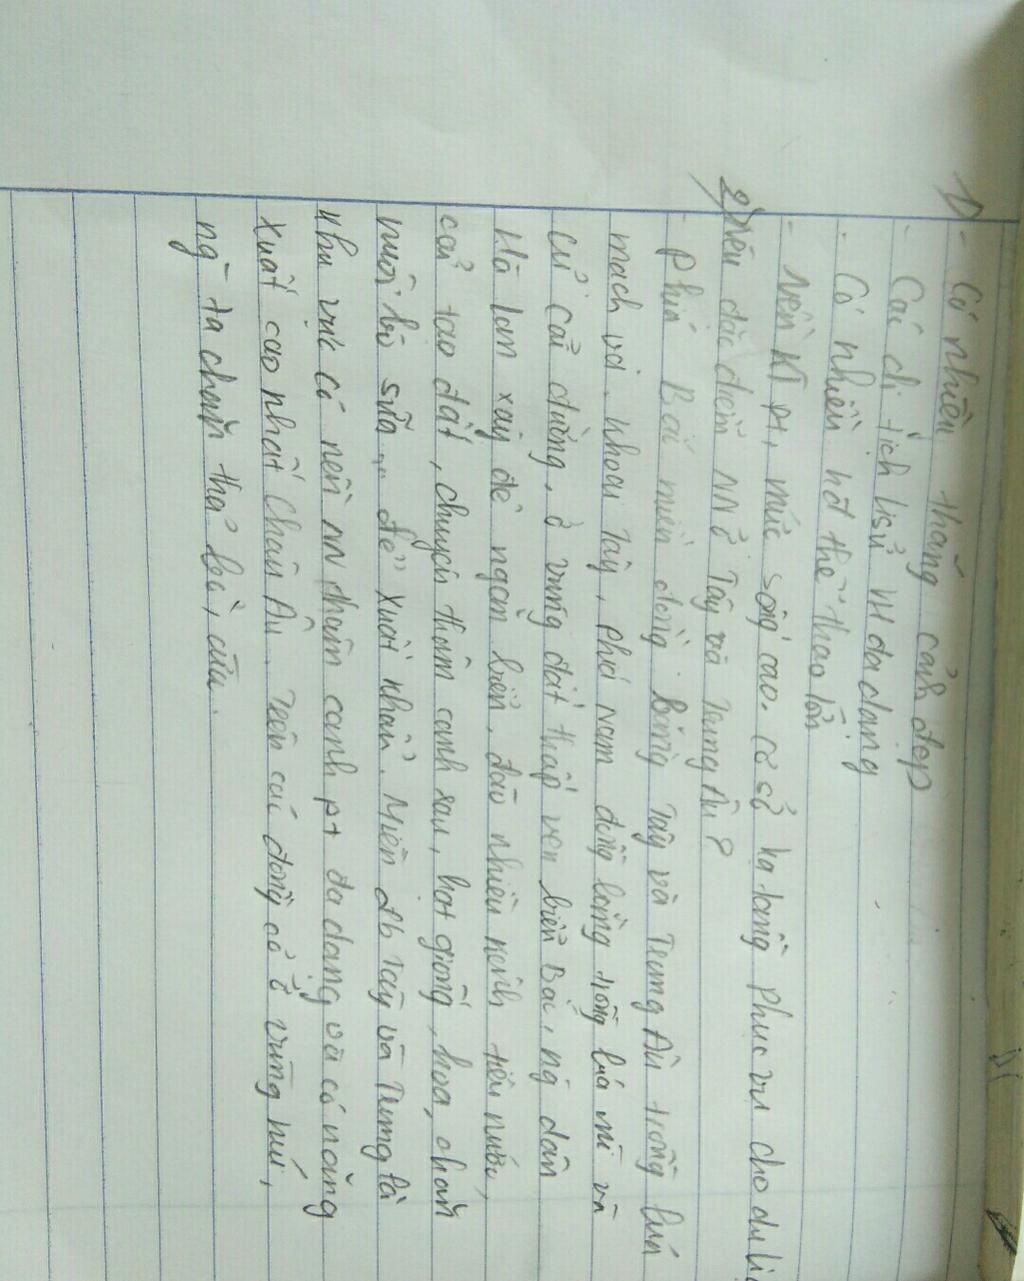 1) - Có nhiều thắng cảnh đẹp
- Các di tích lịsử vh đa dạng
- Có nhiều hđ thể thao lớn
- Nền kt pt, mức sống cao. Cơ sở hạ tầng phục vụ cho du lị
2) Nêu đặc điểm NN ở Tây và Trung Âu?
- Phía Bắc miền đồng bằng Tây và Trung Âu trồng lúa
mạch và khoai tây, phía Nam đồng bằng trồng lúa mì và
củ cải đường, ở vùng đất thấp ven biển Bắc, ng dân
Hà Lan xây đê ngăn biển, đào nhiều kênh tiêu nước,
cải tạo đất, chuyên thâm canh rau, hạt giống, hoa, chăn
nuôi bò sữa... để xuất nhẩu. Miền đb Tây và Trung là
khu vực có nền NN thâm canh pt đa dạng và có năng
xuất cao nhất Châu Âu. Trên các đồng cỏ ở vùng núi,
ng ta chăn thả bò, cừu.